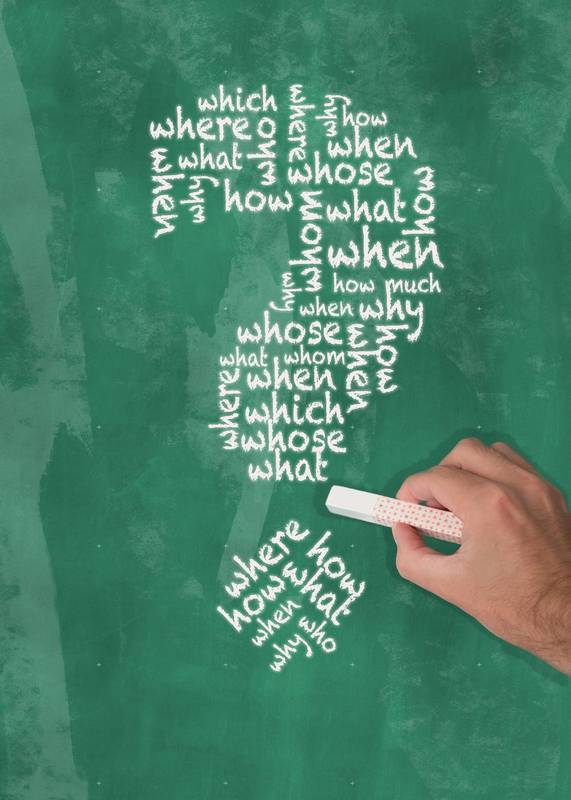 which
where
who
what
when
why
how
where
why
how
when
whose
what
how
whom
when
how much
why
when
why
whose
what
whom
when
how
when
where
which
whose
what
where
how
how
what
when
who
why